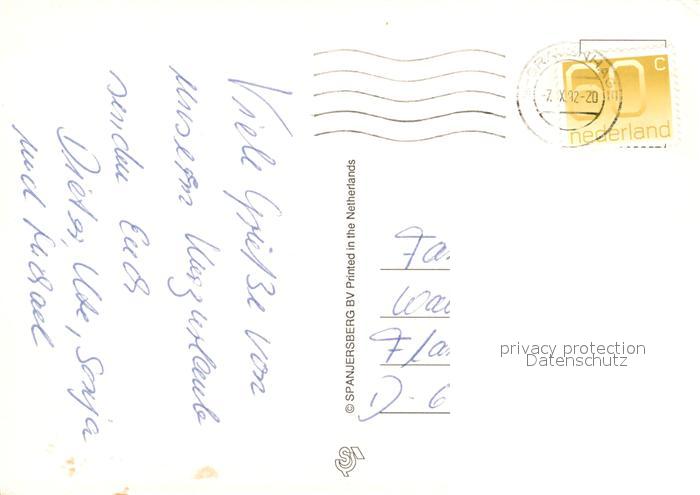 Viele Grüße von
unserem Kurzurlaub
senden Euch
Dieter, Ute, Sonja
und Michael
© SPANJERSBERG BV Printed in the Netherlands
'S-GRAVENHAGE
-7.X.92-20
60 c
nederland
Fa
Wa
Fla
D-6
privacy protection
Datenschutz